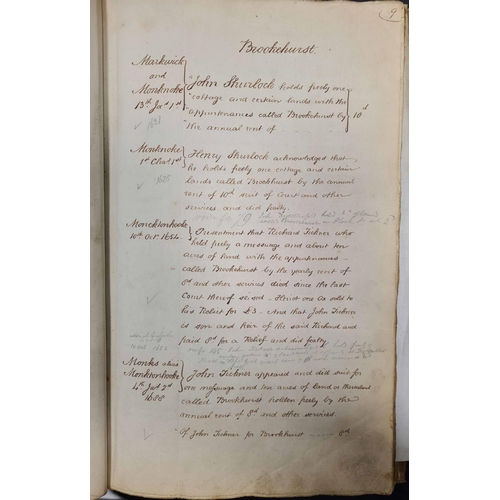 9
Brookehurst
Markwick
and
Monknoke
13th Jas 1st
"John Shurlock holds freely one
"cottage and certain lands with the
"appurtenances called Brookehurst by
"the annual rent of
10d
Monknoke
1st Chas 1st
Henry Shurlock acknowledged that
he holds freely one cottage and certain
lands called Brookhurst by the annual
rent of 10d suit of Court and other
services and did fealty.
1625
Moncktonhooke
10th Octr 1654
Presentment that Richard Tickner who
held freely a messuage and about ten
acres of land with the appurtenances
called Brookehurst by the yearly rent of
8d and other services died since the last
Court thereof seised - Heriot one Ox sold to
his Relict for £3. And that John Tickner
is son and heir of the said Richard and
paid 8d for a Relief and did fealty.
Monks alias
Monktonhooke
4th Jas 2d
1688
John Tickner appeared and did suit for
one messuage and ten acres of land in
called Brookhurst holden freely by the
annual rent of 8d and other services.
Of John Tickner for Brookhurst 8d